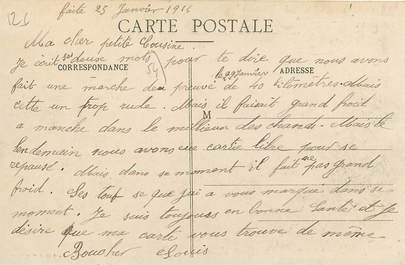 126
faite 25 Janvier 1914
CARTE POSTALE
Ma cher petite Cousine
Je écrit ses deuse mots pour te dire que nous avons
CORRESPONDANCE
54
le 22 Janvier
ADRESSE
fait une marche de preuve de 40 kilomètres Mais
cette un prop rude. Mais il faisait grand froid
M
a manche dans le meilleur des chands. Mais le
lendemain nous avons carte libre pour se
repausé. Mais dans se moment il fait pas grand
froid. Ses tout se que j'ai a vous marqué dans se
moment. Je suis toujours en bonne Santé et Je
désire que ma carte vous trouve de même
Boucher Louis